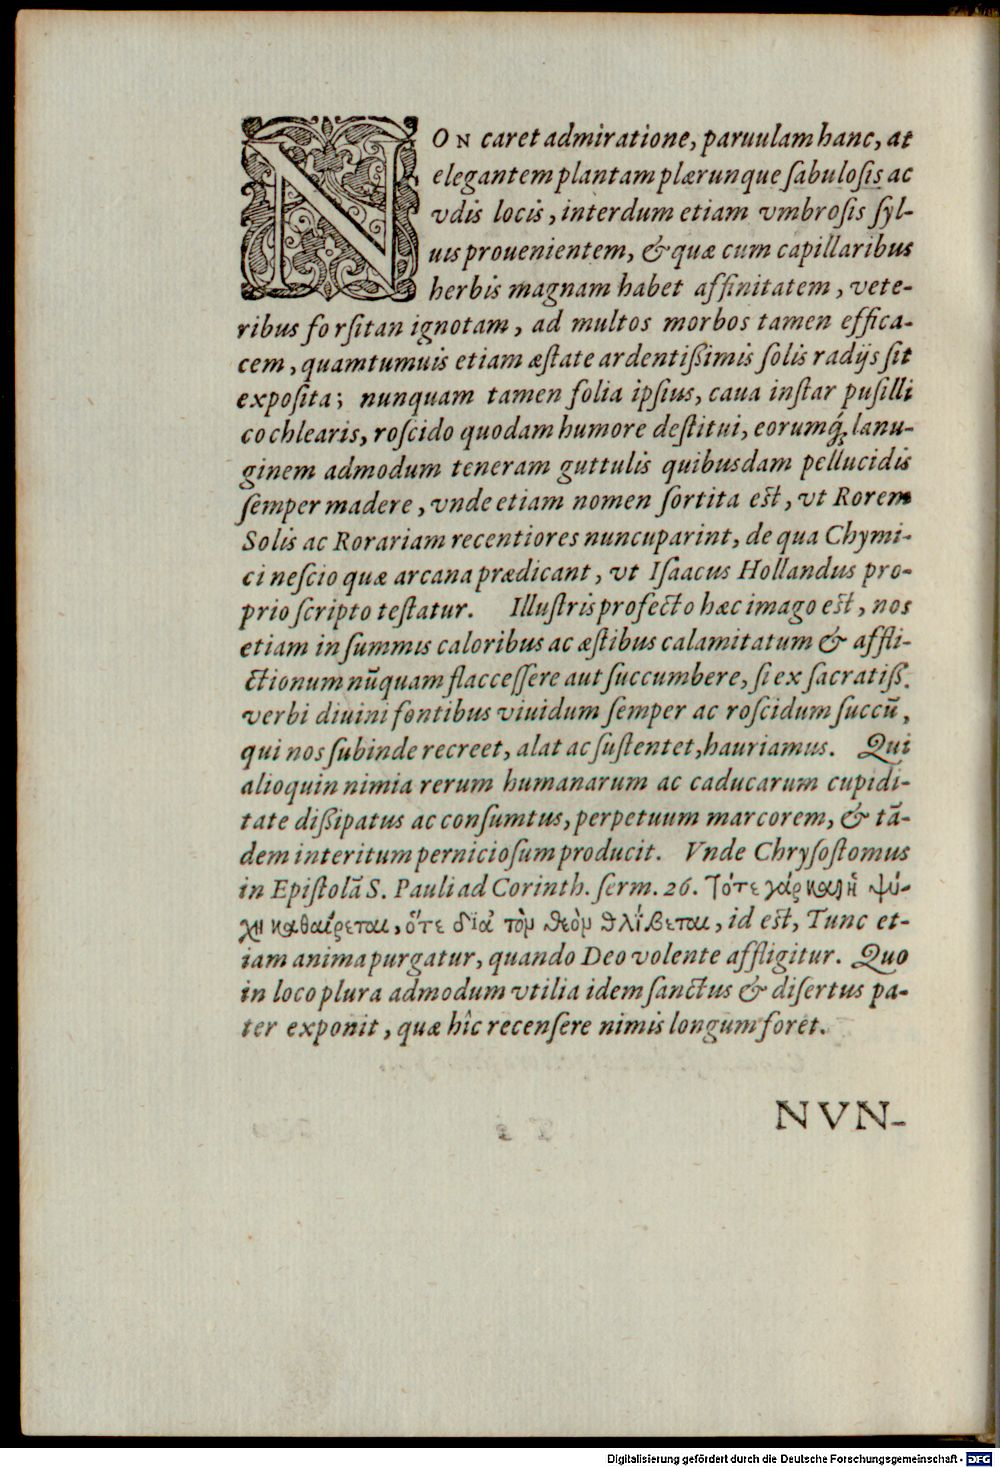 NON caret admiratione, paruulam hanc, at
elegantem plantam plærunque ſabuloſis ac
vdis locis, interdum etiam vmbroſis ſyl-
uis prouenientem, & quæ cum capillaribus
herbis magnam habet affinitatem, vete-
ribus forſitan ignotam, ad multos morbos tamen effica-
cem, quamtumuis etiam æſtate ardentißimis ſolis radijs ſit
expoſita; nunquam tamen folia ipſius, caua inſtar puſilli
cochlearis, roſcido quodam humore deſtitui, eorumq́; lanu-
ginem admodum teneram guttulis quibusdam pellucidis
ſemper madere, vnde etiam nomen ſortita eſt, vt Rorem
Solis ac Rorariam recentiores nuncuparint, de qua Chymi-
ci neſcio quæ arcana prædicant, vt Iſaacus Hollandus pro-
prio ſcripto teſtatur. Illuſtris profecto hæc imago eſt, nos
etiam in ſummis caloribus ac æſtibus calamitatum & affli-
ctionum nũquam flacceſſere aut ſuccumbere, ſi ex ſacratiß.
verbi diuini fontibus viuidum ſemper ac roſcidum ſuccũ,
qui nos ſubinde recreet, alat ac ſuſtentet, hauriamus. Qui
alioquin nimia rerum humanarum ac caducarum cupidi-
tate dißipatus ac conſumtus, perpetuum marcorem, & tã-
dem interitum pernicioſum producit. Vnde Chryſoſtomus
in Epiſtolã S. Pauli ad Corinth. ſerm. 26. Τότε γάρ καὶ ἡ ψύ-
χη καθαίρεται, ὅτε διὰ τὸν θεὸν θλίβεται, id eſt, Tunc et-
iam anima purgatur, quando Deo volente affligitur. Quo
in loco plura admodum vtilia idem ſanctus & diſertus pa-
ter exponit, quæ hîc recenſere nimis longum foret.
NVN-
Digitalisierung gefördert durch die Deutsche Forschungsgemeinschaft - DFG